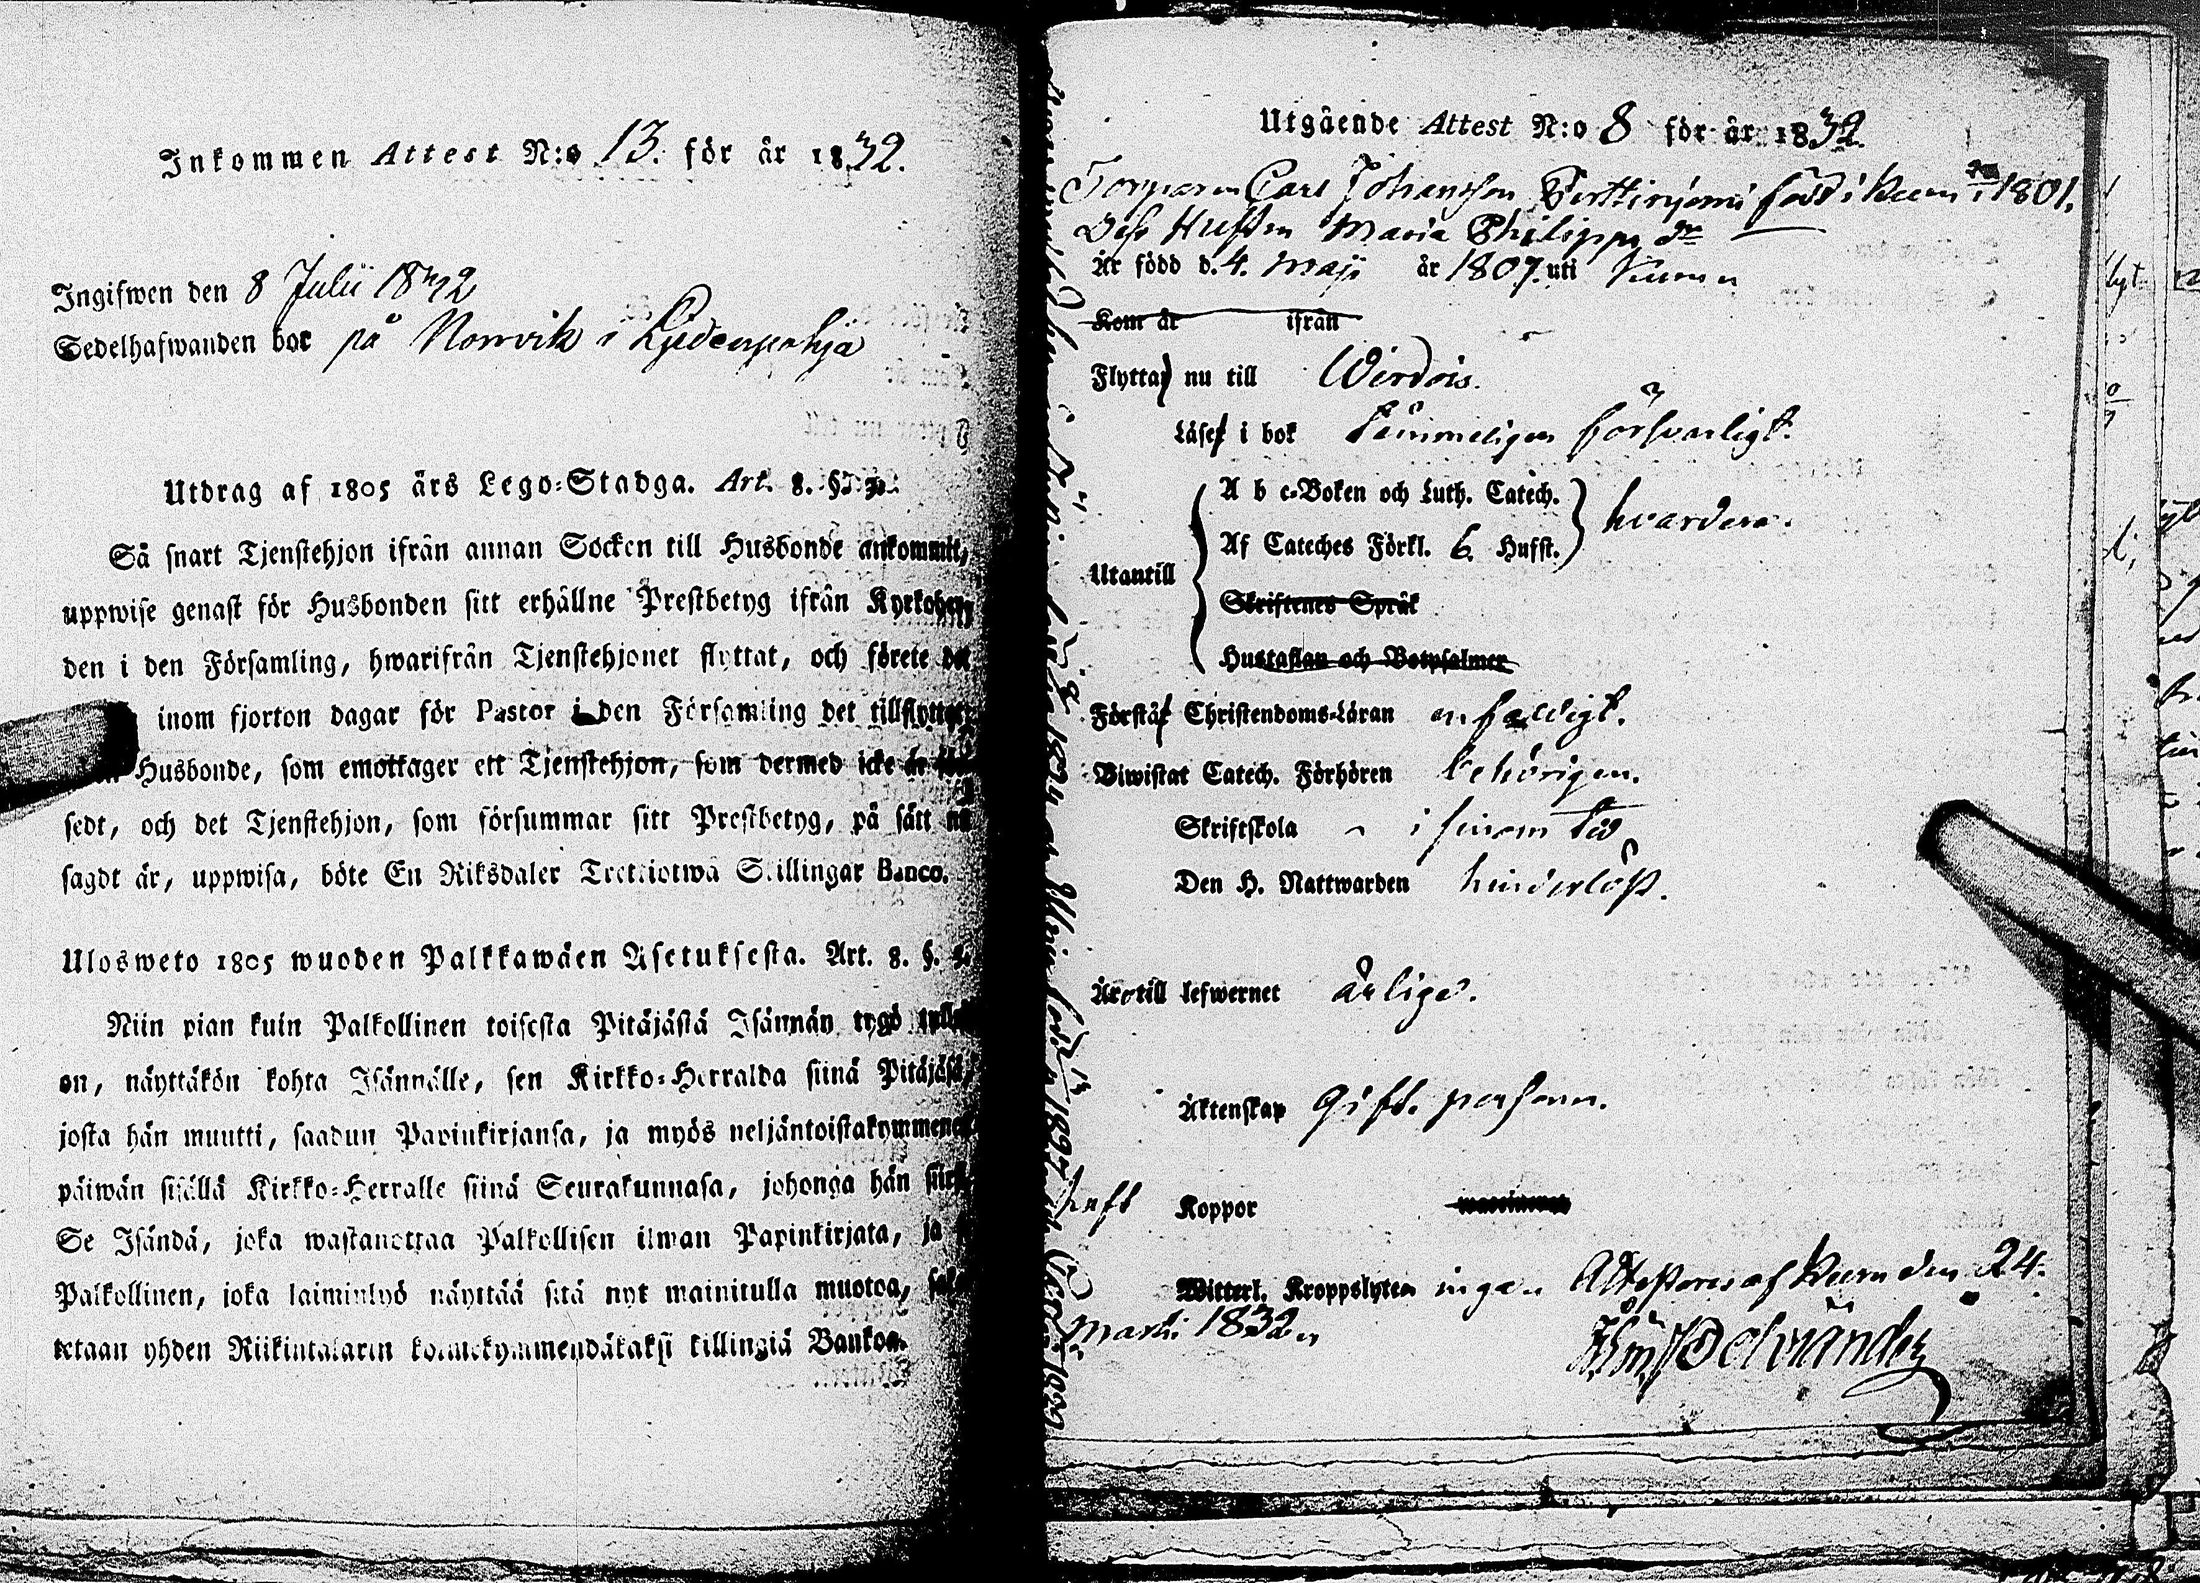 Inkommen Attest N:o 13. för år 1832.
Ingifwen den 8 Julii 1832
Sedelhafwanden bor på Norrvik i
Utdrag af 1805 års Lego-Stadga. Art. 8. §.
Så snart Tjenstehjon ifrån annan Socken till Husbonde ankommit,
uppwise genast för Husbonden sitt erhållne Prestbetyg ifrån
den i den Församling, hwarifrån Tjenstehjonet flyttat, och förete det
inom fjorton dagar för Pastor i den Församling det
Husbonde, som emottager ett Tjenstehjon, som dermed icke är
sedt, och det Tjenstehjon, som försummar sitt Prestbetyg, på sätt nu
sagdt är, uppwisa, böte En Riksdaler Trettiotwå Skillingar Banco.
Ulosweto 1805 wuoden Palkkawäen Asetuksesta. Art. 8. §.
Niin pian kuin Palkollinen toisesta Pitäjästä Isännän tygö
on, näyttäkön kohta Isännälle, sen Kirkko-Herralda siinä Pitäjäsä,
josta hän muutti, saadun Papinkirjansa, ja myös neljäntoistakymmenen
päiwän sisällä Kirkko-Herralle siinä Seurakunnasa, johonga hän
Se Isändä, joka wastanottaa Palkollisen ilman Papinkirjata, ja
Palkollinen, joka laiminlyö näyttää sitä nyt mainitulla muotoa,
tetaan yhden Riikintalarin kolmekymmendäkaksi killingiä Bankoa.
Utgående Attest N:o 8 för år 1832.
Torparen Carl Johansson född i 1801.
Dess Hustru Maria Philipps dr
Är född d. 4. Maji år 1807. uti
Kom år ifrån
Flytta nu till Wirdois.
Läse i bok Temmeligen försvarligt.
A b c-Boken och Luth. Catech.
Af Cateches Förkl. 6. Hufst. hvardera.
Utantill
Skriftenes Språk
Hustaflan och Botpsalmer
Förstå Christendoms-Läran enfaldigt.
Biwistat Catech. Förhören behörigen.
Skriftskola i sinom tid
Den H. Nattwarden hinderlöst.
Äro till lefwernet ärlige.
Äktenskap Gift. person.
haft Koppor
Witterl. Kroppslyten inga. af den 24.
Martii 1832.